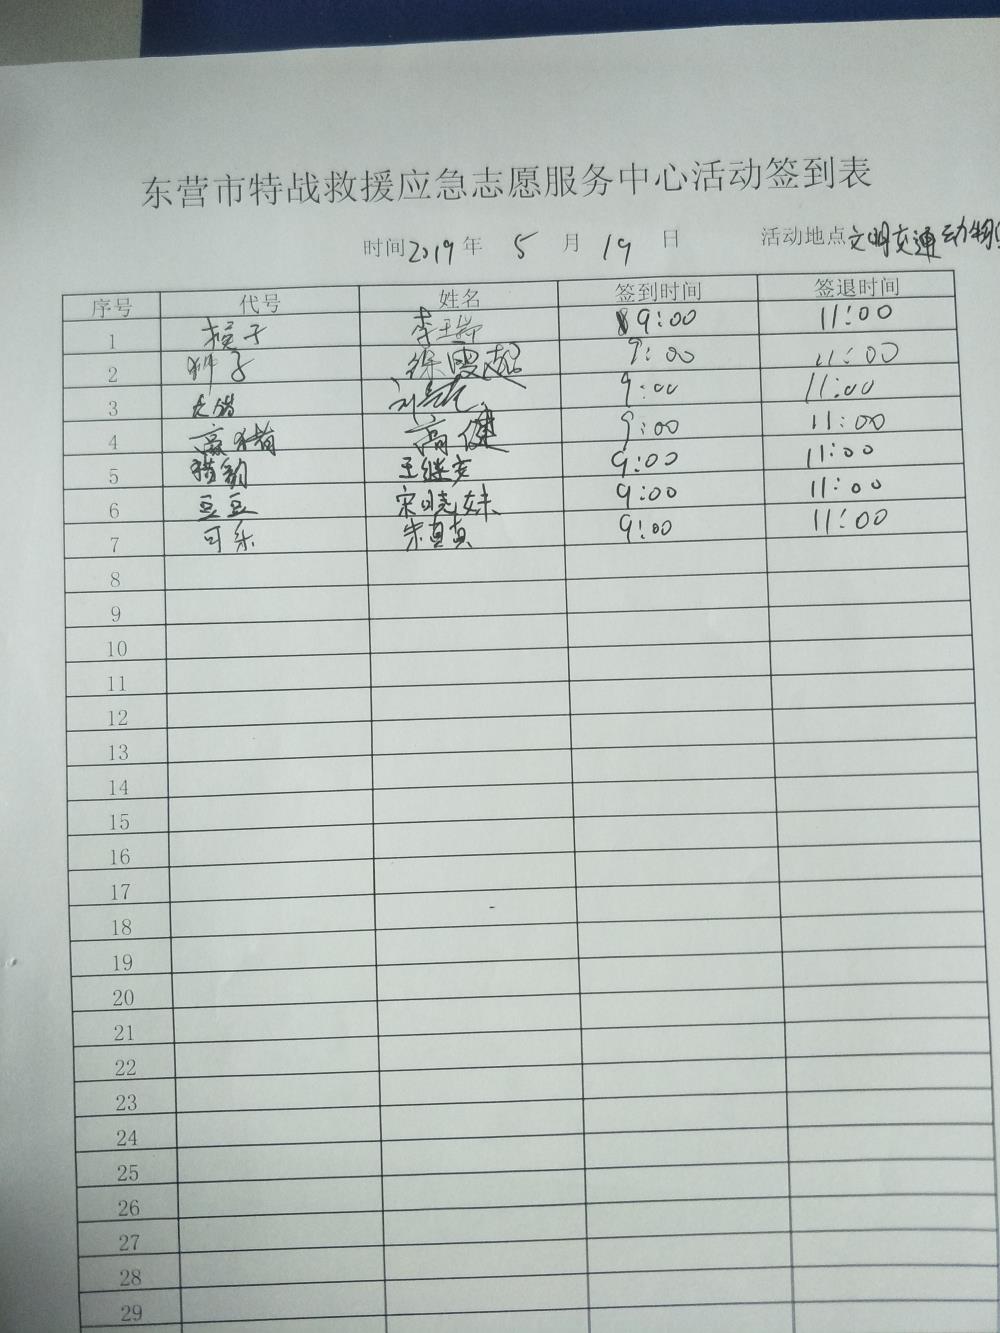 东营市特战救援应急志愿服务中心活动签到表
时间2019年 5 月 19 日 活动地点文明交通动物
序号 代号 姓名 签到时间 签退时间
1 猴子 李 9:00 11:00
2 狮子 徐 超 9:00 11:00
3 9:00 11:00
4 高健 9:00 11:00
5 猎豹 王继 9:00 11:00
6 豆豆 宋晓妹 9:00 11:00
7 可乐 朱真真 9:00 11:00
8
9
10
11
12
13
14
15
16
17
18
19
20
21
22
23
24
25
26
27
28
29